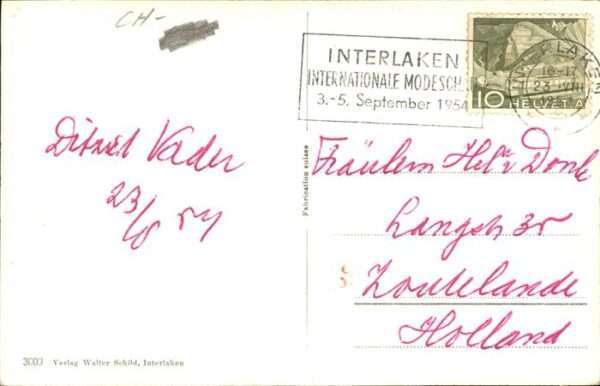 CH-
INTERLAKEN
INTERNATIONALE MODESCH
3.-5. September 1954
10 HELVETIA
INTERLAKEN
23.VIII
Vader
23/8 54
Fabrication suisse
Fräulein Hel v Donk
Langstr 35
Zoutelande
Holland
3003 Verlag Walter Schild, Interlaken